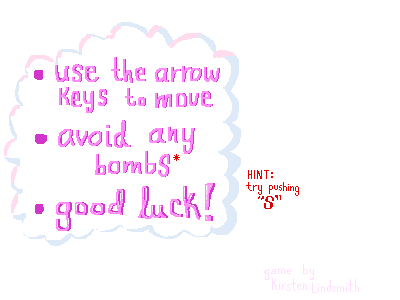 • use the arrow
keys to move
• avoid any
bombs*
• good luck!
HINT:
try pushing
"S"
game by
Kirsten Lindsmith